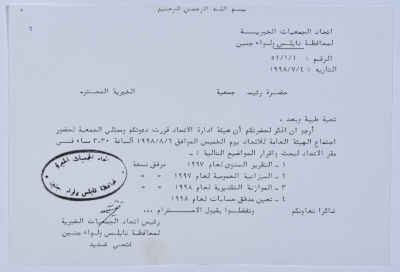 بسم الله الرحمن الرحيم
اتحاد الجمعيات الخيريـــة
لمحافظة نابلس ولواء جنين
الرقم : ٥٢/١/١
التاريخ : ١٩٩٨/٧/٤
حضرة رئيس جمعية الخيرية المحترم
تحية طيبة وبعد ،
أرجو ان اذكر لحضرتكم أن هيئة ادارة الاتحاد قررت دعوتكم وممثلي الجمعية لحضور
اجتماع الهيئة العامة للاتحاد يوم الخميس الموافق ١٩٩٨/٨/٦ الساعة ٣،٣٠ مساء في
مقر الاتحاد لبحث واقرار المواضيع التالية :-
١ - التقرير السنوى لعام ١٩٩٧ مرفق نسخة
٢ - الميزانية العمومية لعام ١٩٩٧ " "
٣ - الموازنة التقديرية لعام ١٩٩٨ " "
٤ - تعيين مدقق حسابات لعام ١٩٩٨
شاكرا تعاونكم وتفضلوا بقبول الاحــترام ،،،
رئيس اتحاد الجمعيات الخيرية
لمحافظة نابلس ولواء جنين
اتحاد الجمعيات الخيرية
محافظة نابلس ولواء جنين